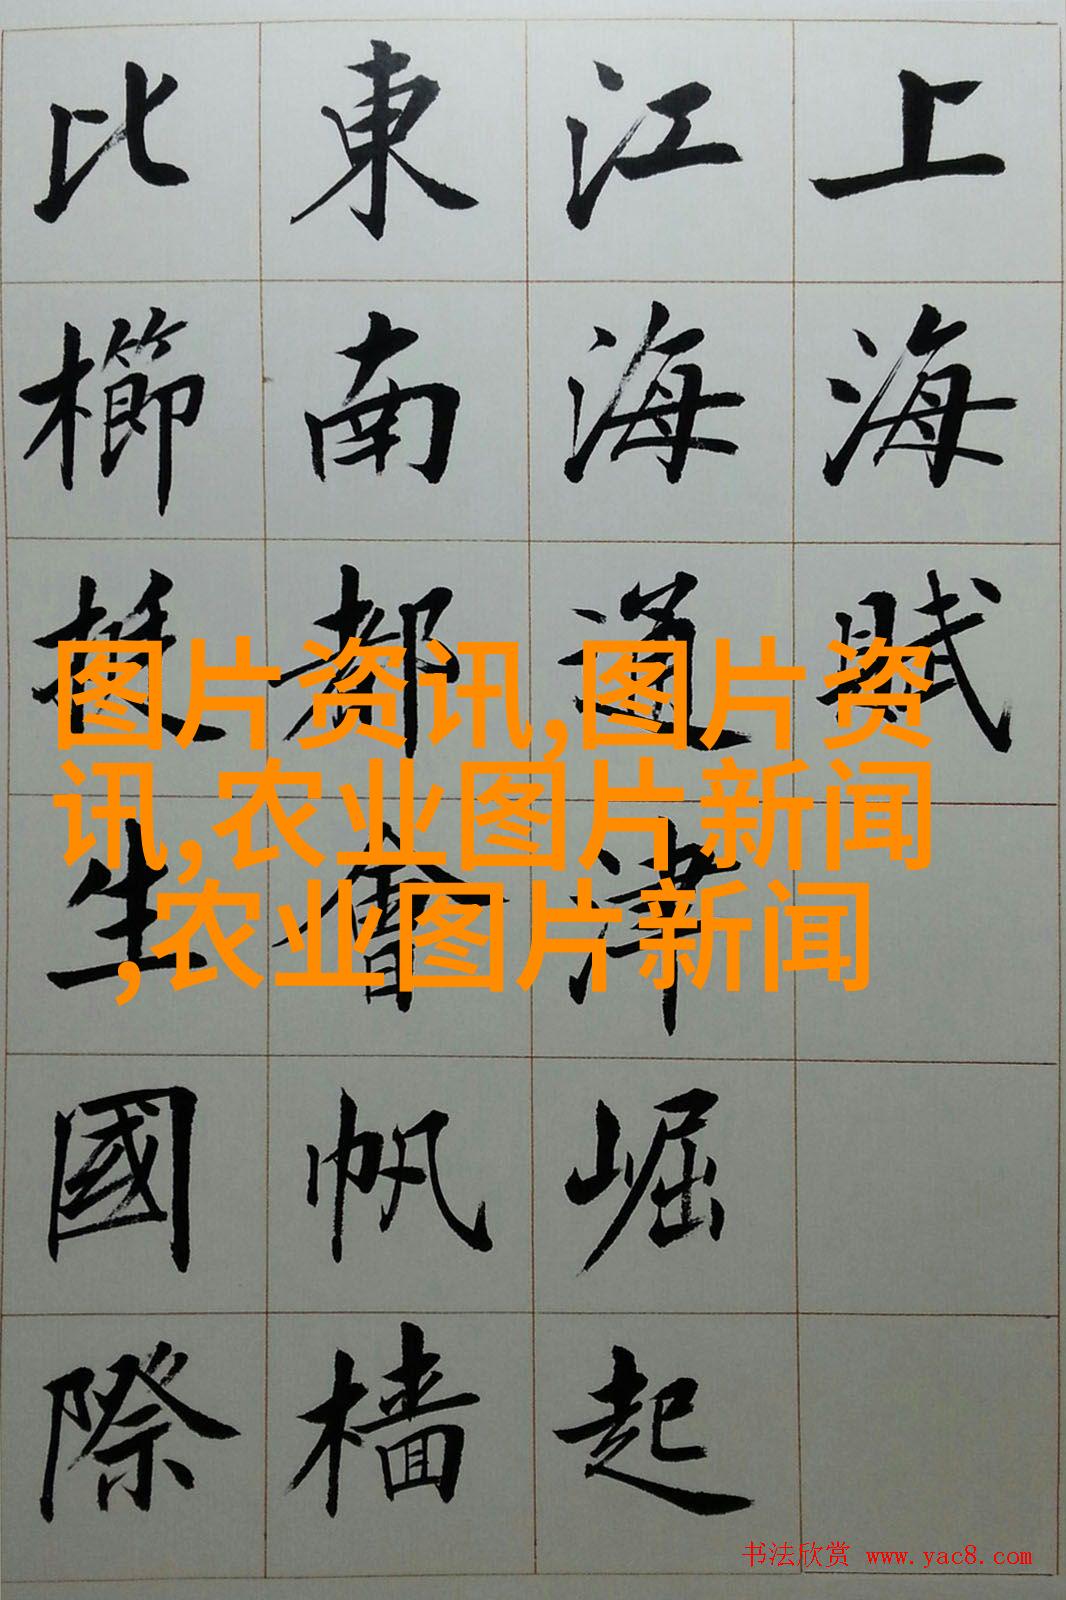 上海賦
江海通津崛起
東南都會帆檣
比櫛挺生國際
图片资讯,图片资
讯,农业图片新闻
,农业图片新闻
书法欣赏 www.yac8.com